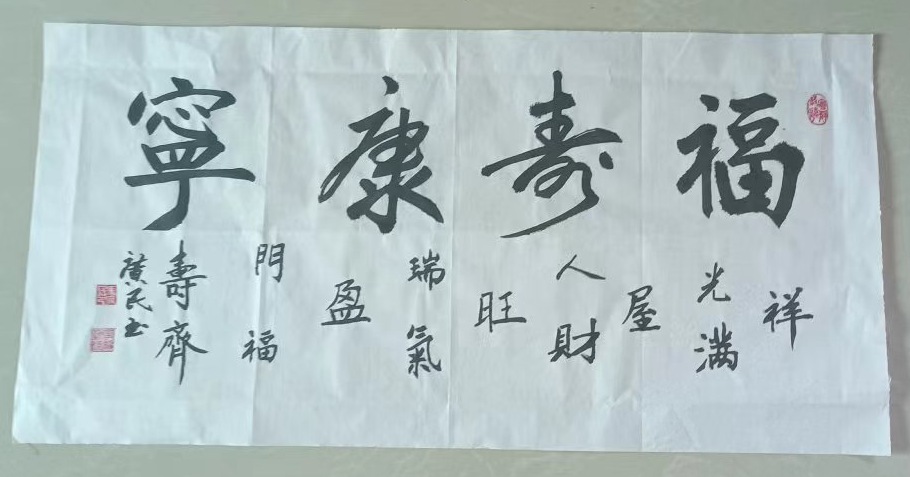 福寿康寧
祥
光满
屋
人財
旺
瑞氣
盈
門福
壽齊
廣民书